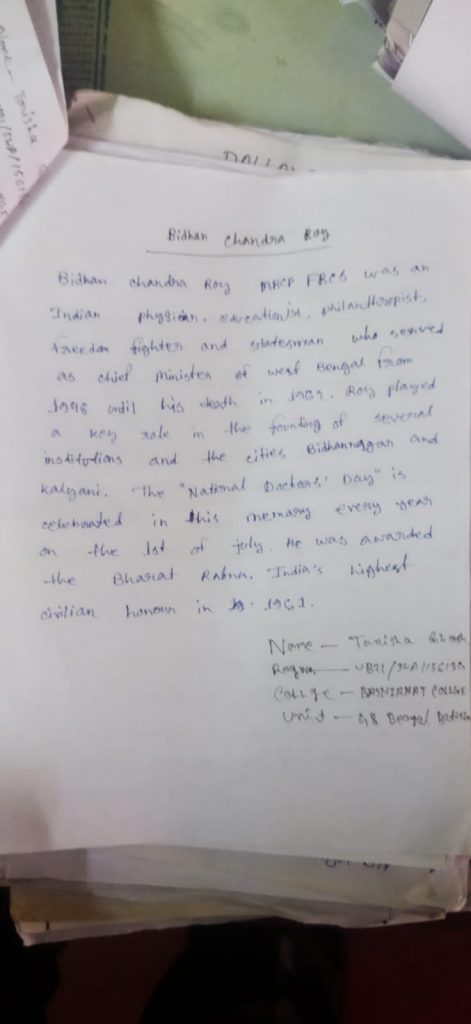 Name - Tanisha
DALLA
Bidhan Chandra Roy
Bidhan chandra Roy MRCP FRCS was an
Indian physician, educationist, philanthropist,
freedom fighter and statesman who served
as chief Minister of west Bengal from
1948 until his death in 1962. Roy played
a key role in the founding of several
institutions and the cities Bidhannagar and
Kalyani. The "National Doctors' Day" is
celebrated in this memory every year
on the 1st of july. He was awarded
the Bharat Ratna. India's highest
civilian honour in 1961.
Name - Tanisha
Regno - WB21/SWA/156130
College - BASHIRHAT COLLEGE
Unit - 48 Bengal